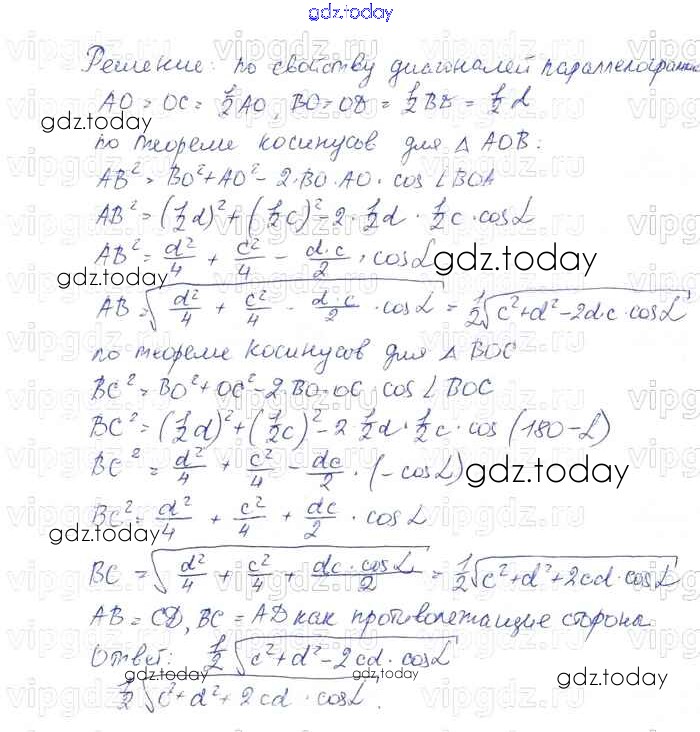 gdz.today
Решение: по свойству диагоналей параллелограмма
AO = OC = 1/2 AO, BO = OD = 1/2 BD = 1/2 d
gdz.today
по теореме косинусов для △ AOB:
AB² = BO² + AO² - 2·BO·AO· cos ∠BOA
AB² = (1/2 d)² + (1/2 c)² - 2 · 1/2 d · 1/2 c · cos L
AB² = d²/4 + c²/4 - d·c/2 · cos L
gdz.today gdz.today
AB = √(d²/4 + c²/4 - d·c/2 · cos L) = 1/2 √(c² + d² - 2d·c · cos L)
по теореме косинусов для △ BOC
BC² = BO² + OC² - 2·BO·OC · cos ∠BOC
BC² = (1/2 d)² + (1/2 c)² - 2 · 1/2 d · 1/2 c · cos (180 - L)
BC² = d²/4 + c²/4 - dc/2 · (- cos L)
gdz.today
BC² = d²/4 + c²/4 + dc/2 · cos L
gdz.today
BC = √(d²/4 + c²/4 + dc · cos L/2) = 1/2 √(c² + d² + 2cd · cos L)
AB = CD, BC = AD как противолежащие стороны.
Ответ: 1/2 √(c² + d² - 2cd · cos L)
1/2 √(c² + d² + 2cd · cos L).
gdz.today gdz.today
vipgdz.ru